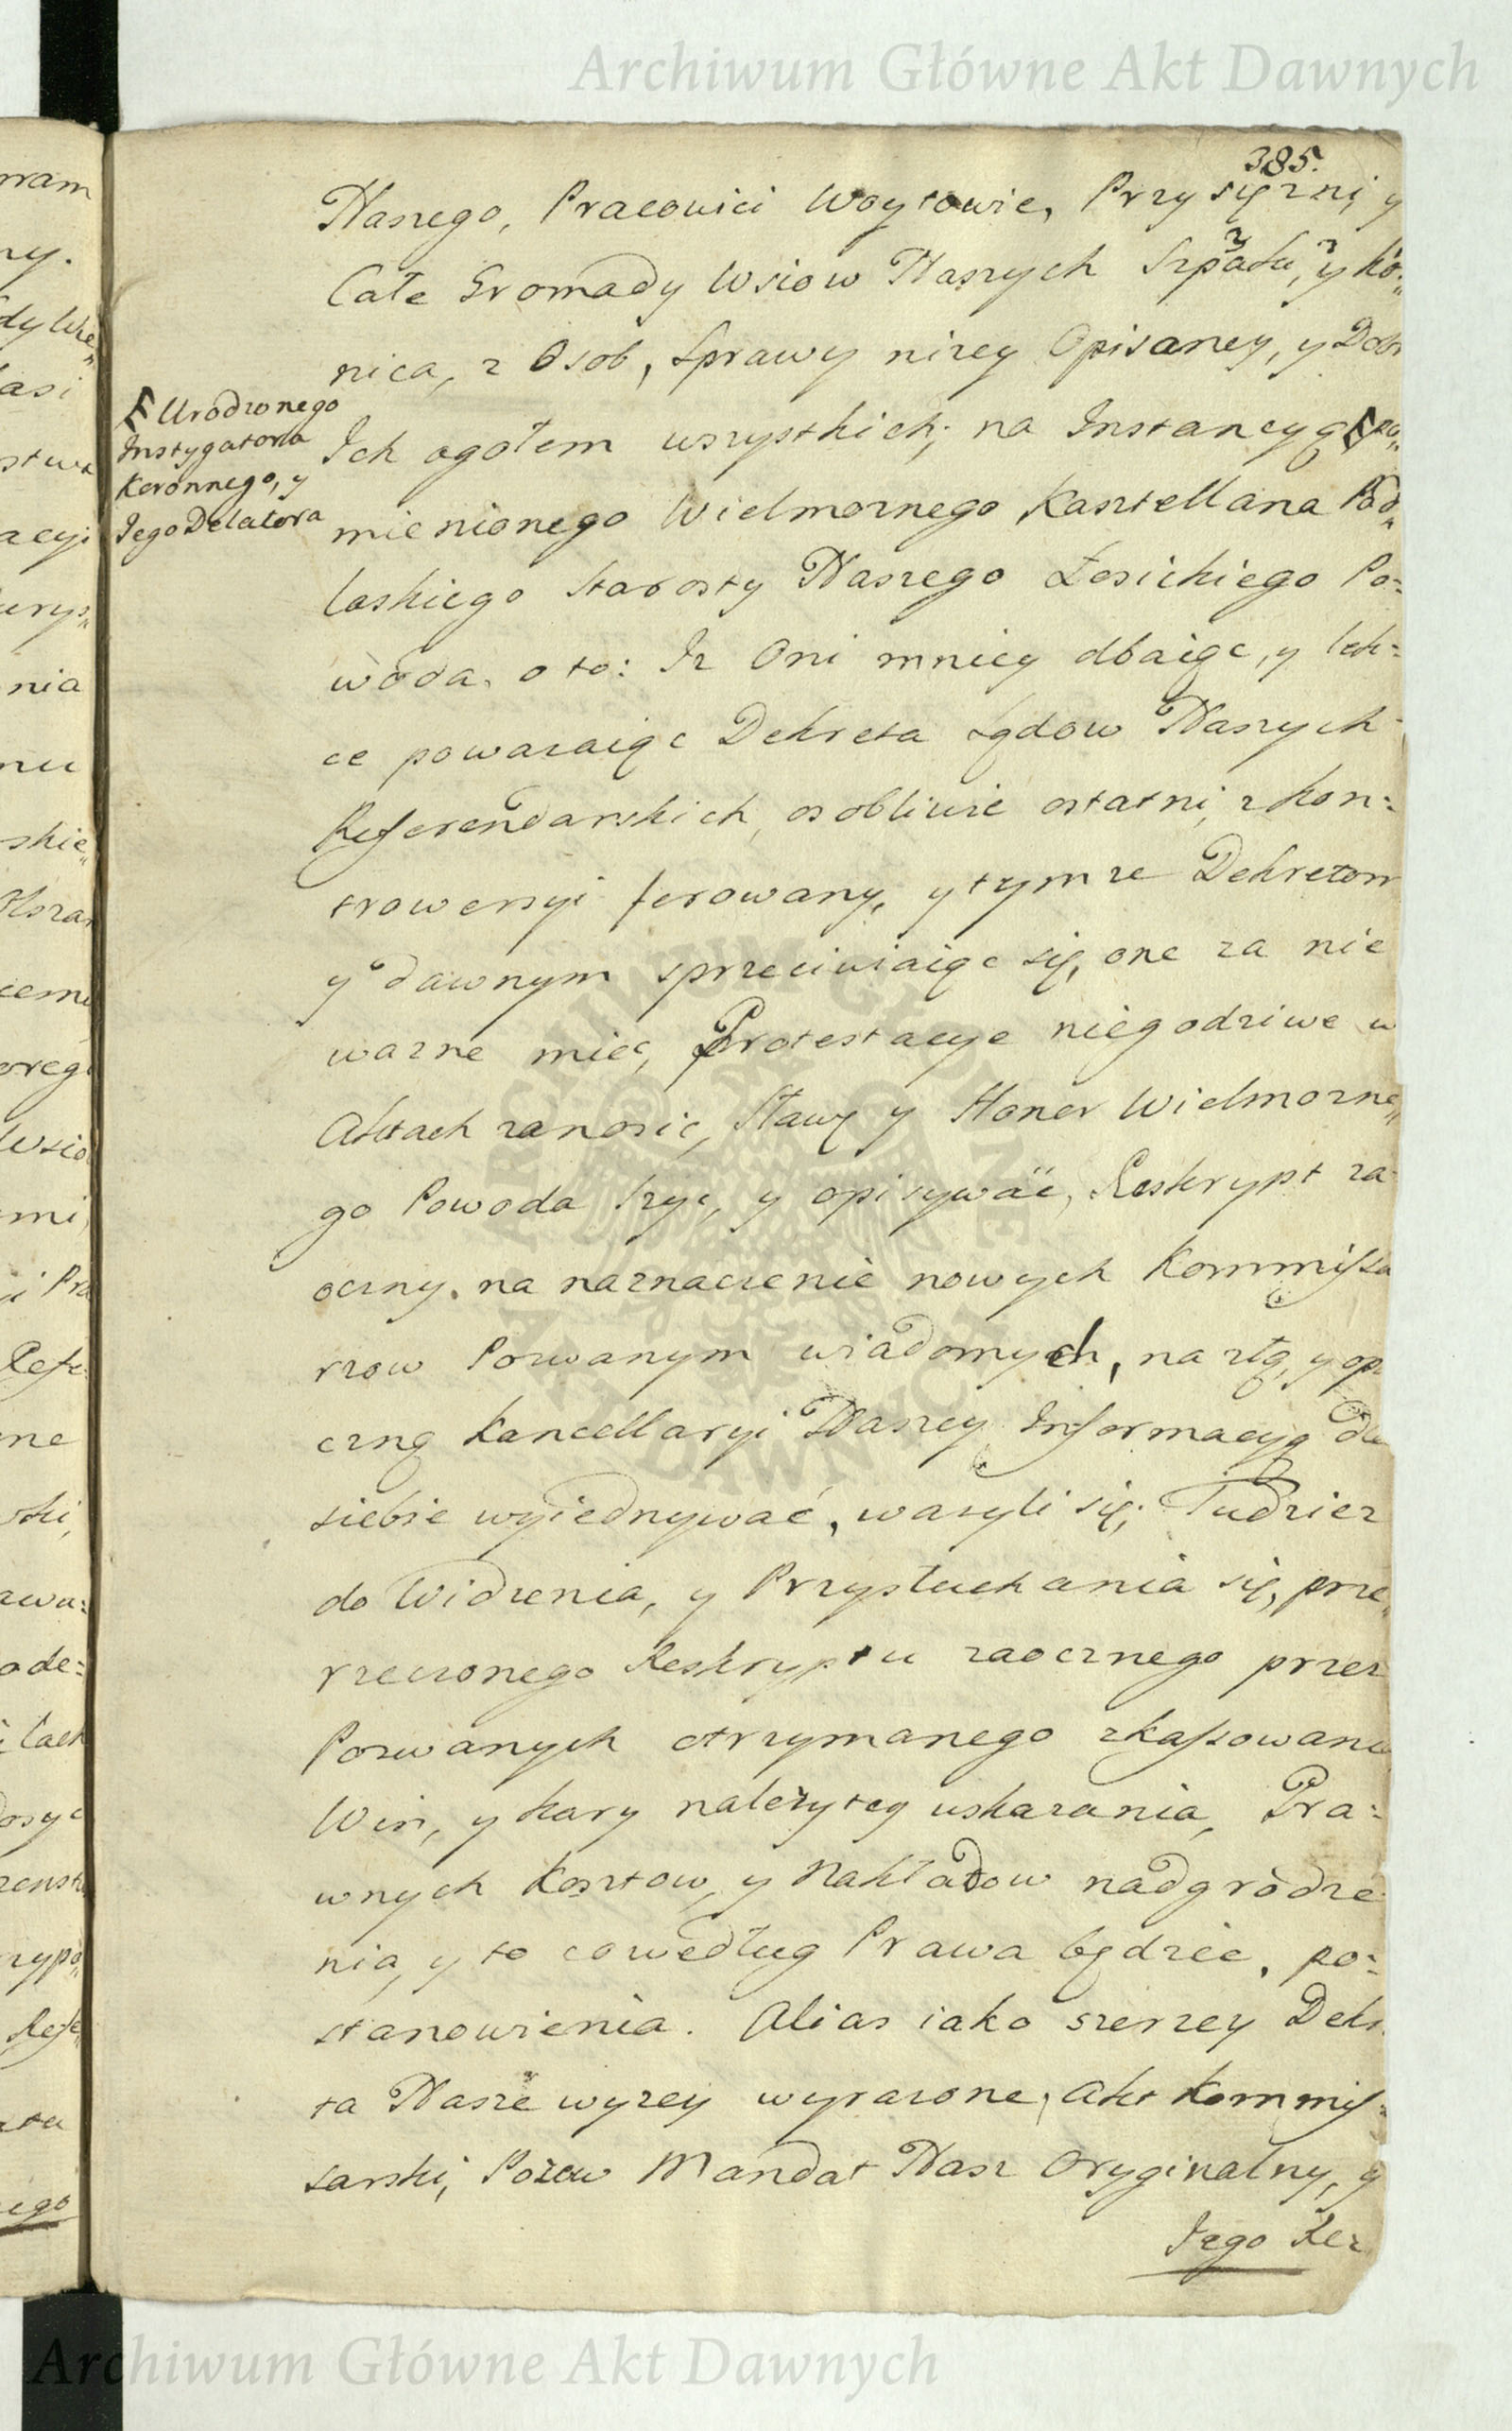 Archiwum Główne Akt Dawnych
385.
Naszego, Pracowici Woytowie, Przysięzni, y
Całe Gromady Wsiow Naszych Szpaku, y Ko„
nica, z Osob, sprawy nizey Opisaney, y Dobr
Ich ogołem wszystkich; na Instancyą po„
mienionego Wielmoznego Kasztellana Pod„
laskiego Starosty Naszego Łosickiego Po=
woda. o to: Iz Oni mniey dbaiąc, y lek=
ce powazaiąc Dekreta Sądow Naszych
Referendarskich, osobliwie ostatni, z kon=
trowersyi ferowany, y tymze Dekretom
y dawnym sprzeciwiaiąc się, one za nie
wazne miec, Protestacye niegodziwe w
Aktach zanosić, Sławę y Honor Wielmozne„
go Powoda lzyc, y opisywać, Reskrypt za
oczny. na naznaczenie nowych Kommissa
rzow Pozwanym wiadomych, na złą, y op
czną Kancellaryi Naszey Informacyą dla
siebie wyiednywać, wazyli się; Tudziez
do Widzenia, y Przysłuchania się, prze„
rzeczonego Reskryptu zaocznego przez
Pozwanych otrzymanego zkassowania
Win, y kary nalezytey uskazania, Pra=
wnych Kosztow, y Nakładow nadgrodze
nia, y to co według Prawa będzie, po=
stanowienia. Alias iako szerzey Dekre
ta Nasze wyzey wyrazone, Akt Kommis=
sarski, Pozew Mandat Nasz Oryginalny, y
Iego Rez
Urodzonego
Instygatora
Koronnego, y
Iego Delatora
Archiwum Główne Akt Dawnych